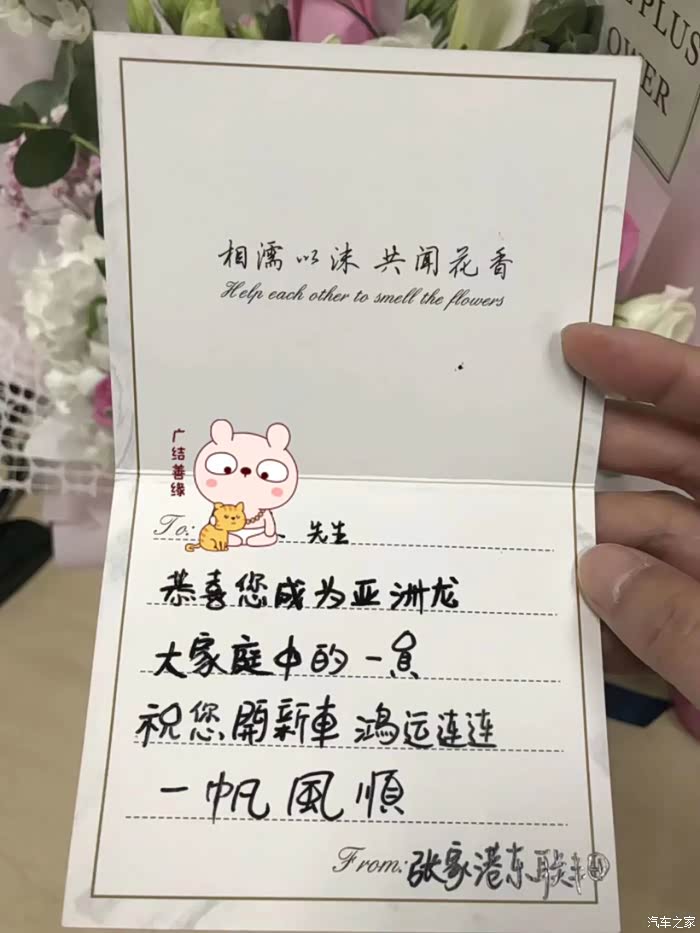 PLUS
OWER
相濡以沫 共闻花香
Help each other to smell the flowers
广结善缘
To: 先生
恭喜您成为亚洲龙
大家庭中的一员
祝您開新車 鴻运连连
一帆風順
From: 张家港东联丰田
汽车之家